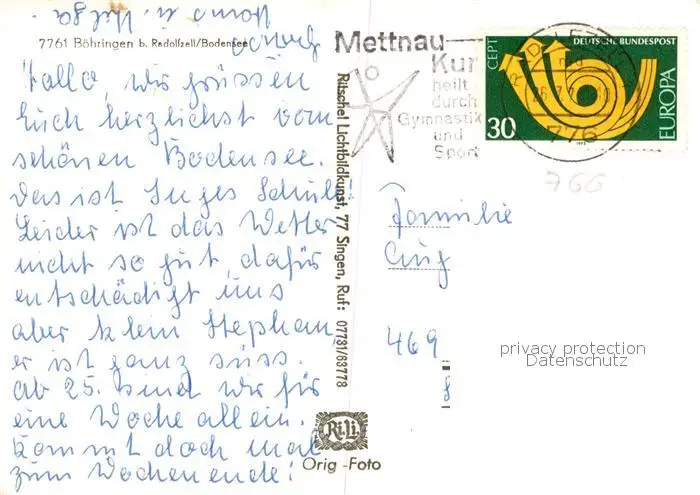 7761 Böhringen b. Radolfzell/Bodensee
Hallo, wir grüssen
Euch herzlichst vom
schönen Bodensee.
Das ist Inges Schule!
Leider ist das Wetter
nicht so gut, dafür
entschädigt uns
aber klein Stephan,
er ist ganz süss.
Ab 25. sind wir für
eine Woche allein.
Kommt doch mal
zum Wochenende!
Hans u. Helga
Ritschel Lichtbildkunst, 77 Singen, Ruf: 07731/63778
Ri.Li.
Orig-Foto
Mettnau
Kur
heilt
durch
Gymnastik
und
Sport
RADOLFZELL
776
DEUTSCHE BUNDESPOST
CEPT
EUROPA
30
1973
766
Familie
469
privacy protection
Datenschutz